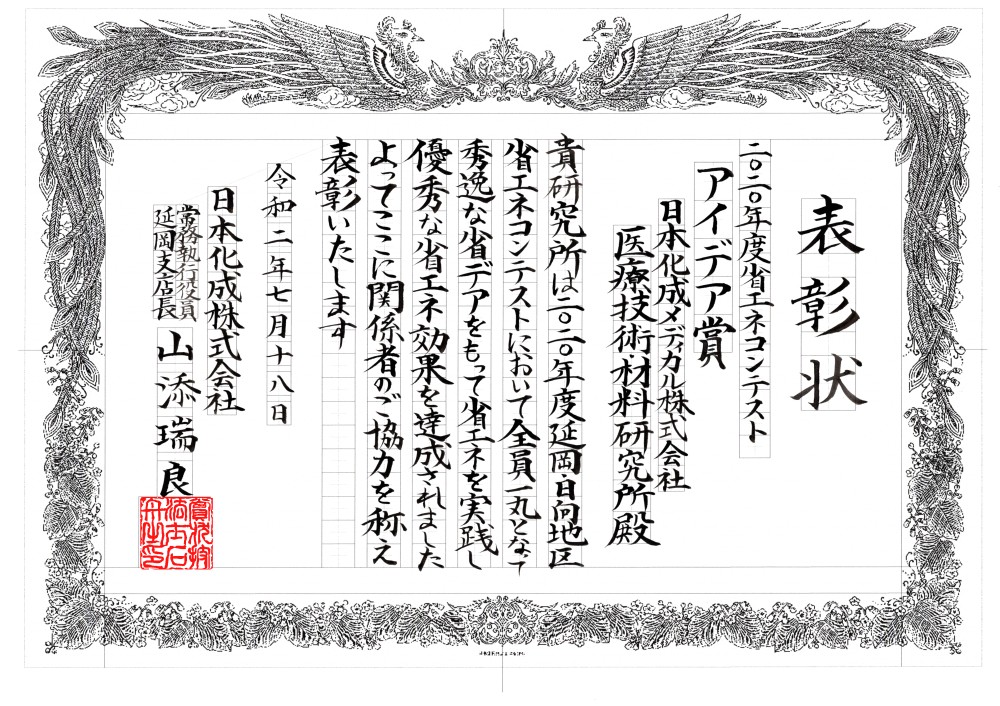 表彰状
二〇二〇年度省エネコンテスト
アイデア賞
日本化成メディカル株式会社
医療技術材料研究所殿
貴研究所は二〇二〇年度延岡・日向地区
省エネコンテストにおいて全員一丸となって
秀逸な省デアをもって省エネを実践し
優秀な省エネ効果を達成されました
よってここに関係者のご協力を称え
表彰いたします
令和二年七月十八日
日本化成株式会社
常務執行役員
延岡支店長
山添瑞良